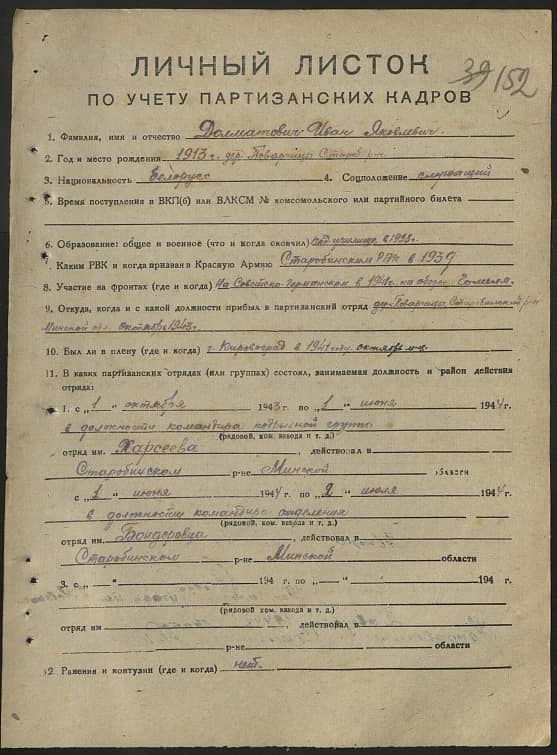 39/152
ЛИЧНЫЙ ЛИСТОК
ПО УЧЕТУ ПАРТИЗАНСКИХ КАДРОВ
1. Фамилия, имя и отчество Долматович Иван Яковлевич.
2. Год и место рождения 1913 г. дер. Поварчицы Староб. р-н
3. Национальность Белорусс 4. Соцположение служащий
5. Время поступления в ВКП(б) или ВЛКСМ № комсомольского или партийного билета
6. Образование: общее и военное (что и когда окончил) училище в 1933 г.
7. Каким РВК и когда призван в Красную Армию Старобинским РВК в 1939
8. Участие на фронтах (где и когда) На Советско-германском в 1941 г. на Гомеля.
9. Откуда, когда и с какой должности прибыл в партизанский отряд дер. Поварчицы Старобинский р-н
Минской обл. октябрь 1943 г.
10. Был ли в плену (где и когда) г. Кировоград в 1941 году октябрь м-ц.
11. В каких партизанских отрядах (или группах) состоял, занимаемая должность и район действия
отряда:
1. с „1 “ октября 1943 г. по „1 “ июня 1944 г.
в должности командира подрывной группы
(рядовой, ком. взвода и т. д.)
отряд им. Харсеева, действовал в
Старобинском р-не Минской области
с „1 “ июня 1944 г. по „2 “ июля 1944 г.
в должности командира отделения
(рядовой, ком. взвода и т. д.)
отряд им. Бондаровца, действовал в
Старобинском р-не Минской области
3. с „ “ 194 г. по „ “ 194 г.
(рядовой ком. взвода и т. д.)
отряд им , действовал в
р-не области
12. Ранения и контузии (где и когда) нет.